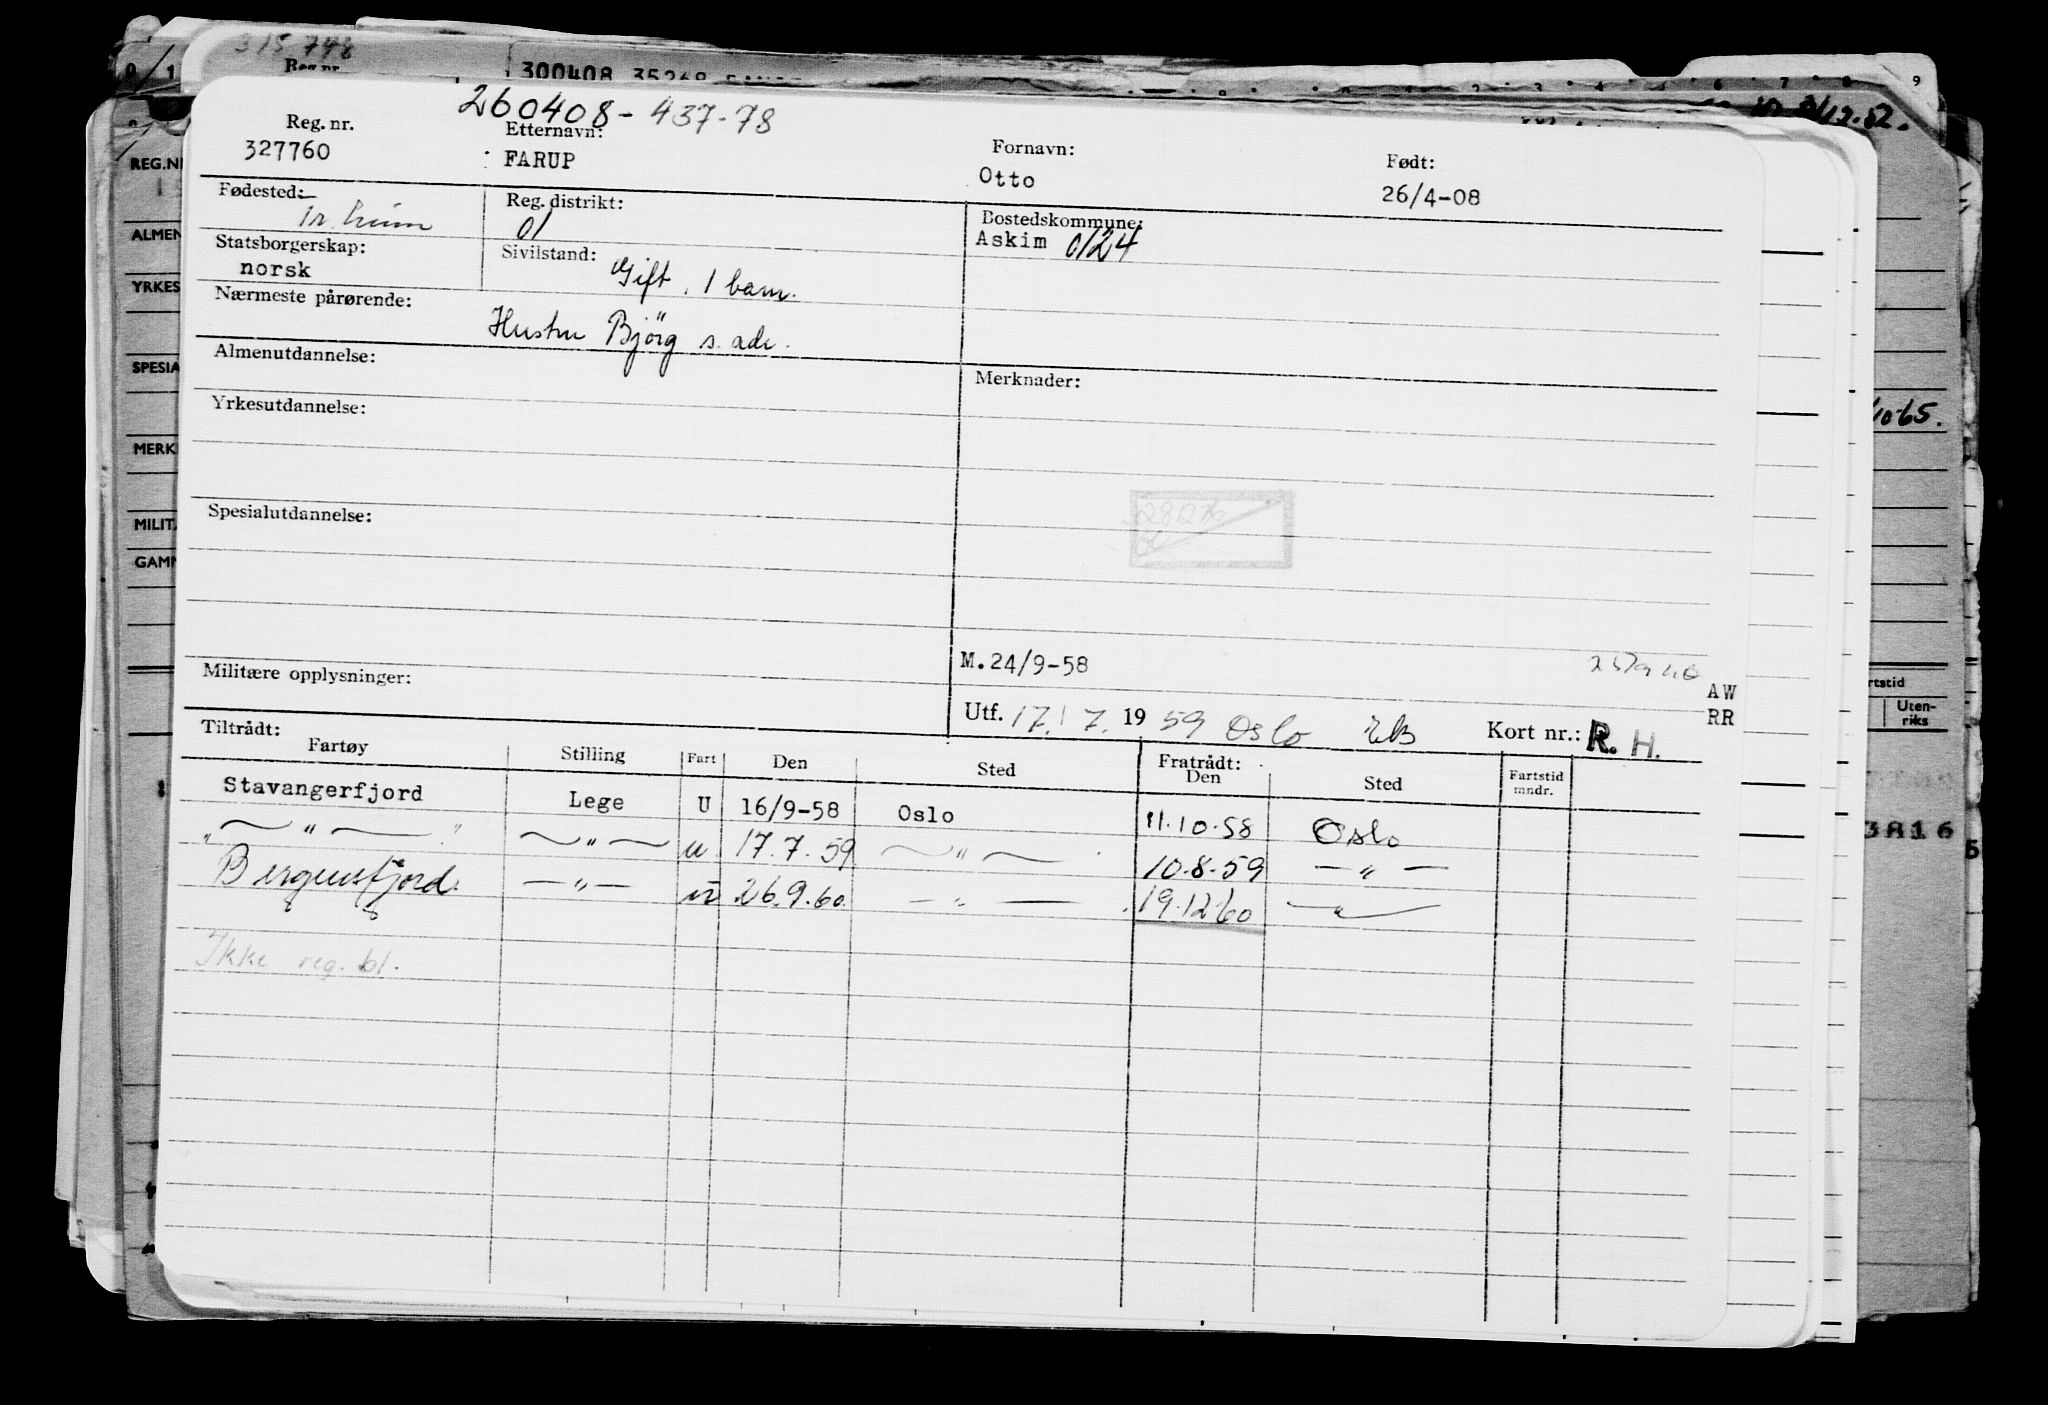 315 748
Reg.nr.
300408 35268
260408-437-78
Reg. nr. Etternavn: Fornavn: Født:
327760 FARUP Otto 26/4-08
Fødested: Reg. distrikt: Bostedskommune:
Tr.heim 01 Askim 0124
Statsborgerskap: Sivilstand:
norsk Gift, 1 barn.
Nærmeste pårørende:
Hustru Bjørg s. adr.
Almenutdannelse: Merknader:
Yrkesutdannelse:
Spesialutdannelse:
M.24/9-58
Militære opplysninger: AW
Utf. 17. 7. 1959 Oslo Kort nr.: R. H. RR
Tiltrådt: Fratrådt:
Fartøy Stilling Fart Den Sted Den Sted Fartstid mndr.
Stavangerfjord Lege U 16/9-58 Oslo 11.10.58 Oslo
" — " — " — " — u 17.7.59 — " — 10.8.59 — " —
Bergensfjord — " — u 26.9.60 — " — 19.12.60 — " —
Ikke reg. bl.
REG.N
ALMEN
YRKES
SPESIA
MERK
MILIT
GAMM
10-65.
rtstid
Uten-
riks
3816